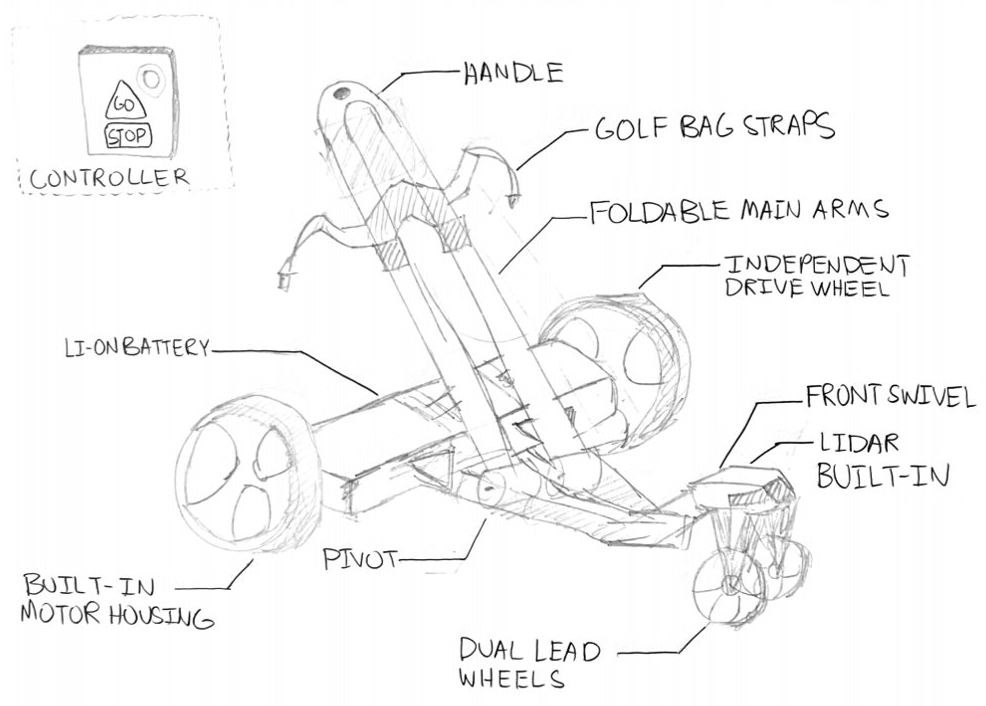 GO
STOP
CONTROLLER
HANDLE
GOLF BAG STRAPS
FOLDABLE MAIN ARMS
INDEPENDENT
DRIVE WHEEL
LI-ON BATTERY
FRONT SWIVEL
LIDAR
BUILT-IN
PIVOT
BUILT-IN
MOTOR HOUSING
DUAL LEAD
WHEELS